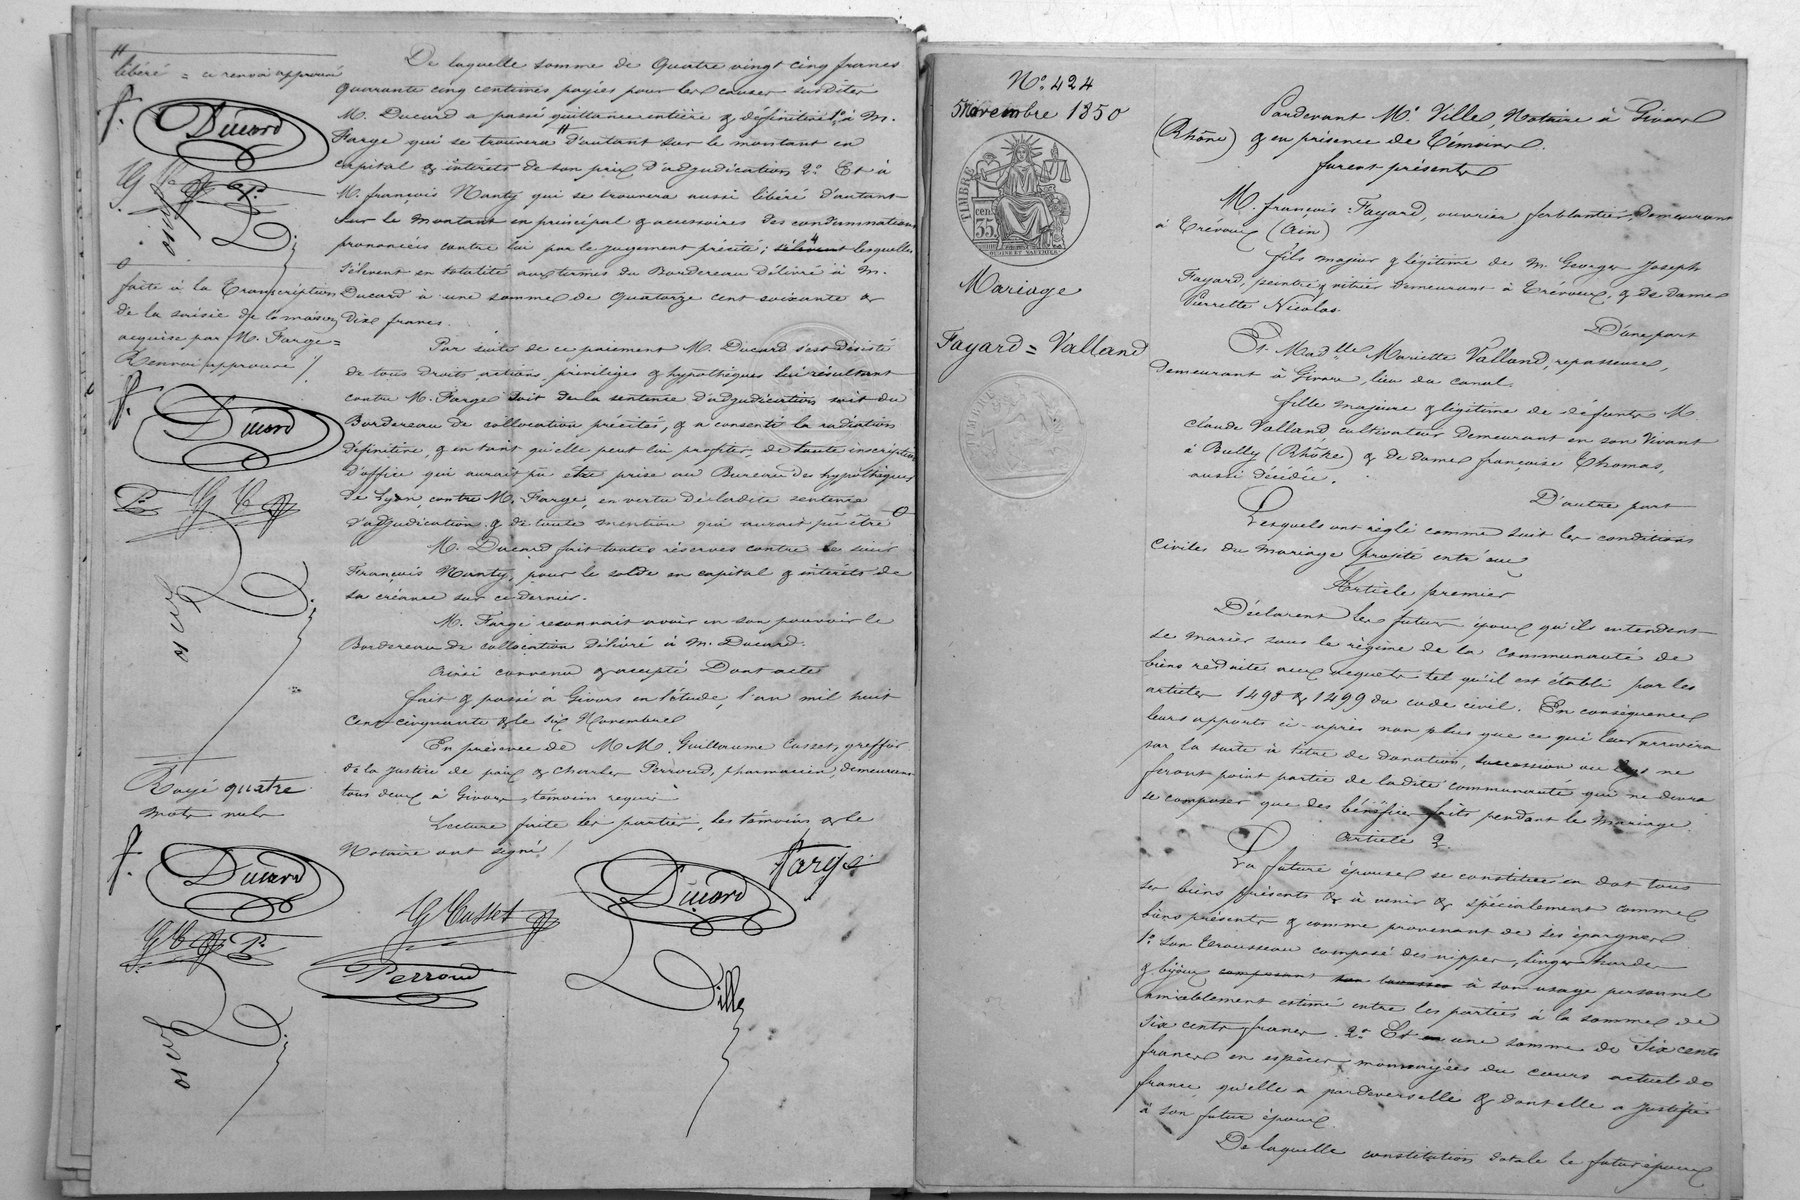 libéré = ce renvoi approuvé
Ducard
faite à la Transcription
de la saisie de la maison
acquise par M. Farge =
Renvoi approuvé /.
Ducard
Rayé quatre
mots nuls
Ducard
De laquelle somme de Quatre vingt cinq francs
quarante cinq centimes payés pour les causes susdites
M. Ducard a passé quittance entière & définitive 1º à M.
Farge qui se trouvera d'autant sur le montant en
capital & intérêts de son prix d'adjudication 2º Et à
M. françois Nanty qui se trouvera aussi libéré d'autant
sur le montant en principal & accessoires des condamnations
prononcées contre lui par le jugement précité; lesquelles
s'élèvent en totalité aux termes du Bordereau délivré à M.
Ducard à une somme de quatorze cent soixante &
dix francs.
Par suite de ce paiement M. Ducard s'est désisté
de tous droits, actions, privilèges & hypothèques lui résultant
contre M. Farge soit de la sentence d'adjudication soit du
Bordereau de collocation précités, & a consenti la radiation
définitive, & en tant qu'elle peut lui profiter, de toute inscription
d'office qui aurait pu être prise au Bureau des hypothèques
de Lyon, contre M. Farge, en vertu de ladite sentence
d'adjudication & de toute mention qui aurait pu être
M. Ducard fait toutes réserves contre le sieur
François Nanty, pour le solde en capital & intérêts de
sa créance sur ce dernier.
M. Farge reconnait avoir en son pouvoir le
Bordereau de collocation délivré à M. Ducard.
Ainsi convenu & accepté Dont acte
fait & passé à Givors en l'étude, l'an mil huit
cent cinquante & le six Novembre
En présence de MM. Guillaume Casset, greffier
de la Justice de paix & Charles Perroud, pharmacien, demeurant
tous deux à Givors, témoins requis
Lecture faite les parties, les témoins & le
Notaire ont signé /
Farge
Ducard
G Casset
Perroud
Ville
Nº 424
5 Novembre 1850
TIMBRE
cen.
35
Mariage
Fayard = Valland
Pardevant Mᵉ Ville, Notaire à Givors
(Rhône) & en présence de Témoins.
furent présents
M. françois Fayard, ouvrier ferblantier demeurant
à Trévoux (Ain)
fils majeur & légitime de M. Georges Joseph
Fayard, peintre & vitrier demeurant à Trévoux, & de dame
Pierrette Nicolas
D'une part
Et Madlle Mariette Valland, repasseuse,
demeurant à Givors, lieu du canal,
fille majeure & légitime de défunts M.
claude Valland cultivateur demeurant en son vivant
à Bully (Rhône) & de dame françoise Thomas,
aussi décédée.
D'autre part
Lesquels ont réglé comme suit les conditions
civiles du mariage projeté entr'eux
Article premier
Déclarent les futurs époux qu'ils entendent
se marier sous le régime de la communauté de
biens réduite aux acquets tel qu'il est établi par les
articles 1498 & 1499 du code civil. En conséquence
leurs apports ci-après non plus que ce qui leur arrivera
par la suite à titre de donation, succession ou legs ne
feront point partie de ladite communauté qui ne devra
se composer que des bénéfices faits pendant le mariage.
Article 2.
La future épouse se constitue en dot tous
ses biens présents & à venir & spécialement comme
biens présents & comme provenant de ses épargnes
1º Son Trousseau composé des nippes, linges hardes
& bijoux composant son trousseau à son usage personnel
amiablement estimé entre les parties à la somme de
six cents francs. 2º Et une somme de Six cents
francs en espèces monnayées du cours actuel de
france, qu'elle a pardevers elle & dont elle a justifié
à son futur époux.
De laquelle constitution dotale le futur époux